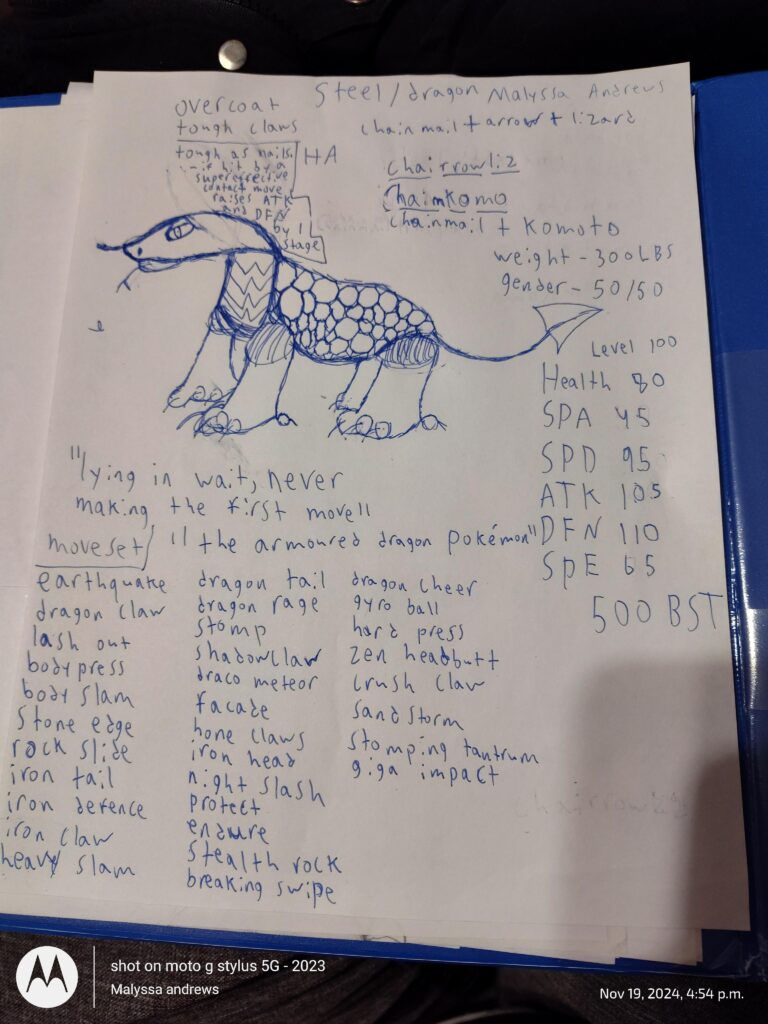 overcoat
tough claws
tough as nails
- if hit by a
supereffective
contact move
raises ATK
and DFN
by 1
stage
HA
Steel/dragon Malyssa Andrews
chainmail + arrow + lizard
chairrowliz
Chaimkomo
chainmail + Komoto
weight - 300 LBS
gender - 50/50
Level 100
Health 80
SPA 45
SPD 95
ATK 105
DFN 110
SpE 65
500 BST
"lying in wait, never
making the first move"
"the armoured dragon pokémon"
moveset
earthquake
dragon claw
lash out
bodypress
body slam
stone edge
rock slide
iron tail
iron defence
iron claw
heavy slam
dragon tail
dragon rage
stomp
shadowclaw
draco meteor
facade
hone claws
iron head
night slash
protect
endure
stealth rock
breaking swipe
dragon cheer
gyro ball
hard press
zen headbutt
crush claw
sandstorm
stomping tantrum
giga impact
shot on moto g stylus 5G - 2023
Malyssa andrews
Nov 19, 2024, 4:54 p.m.